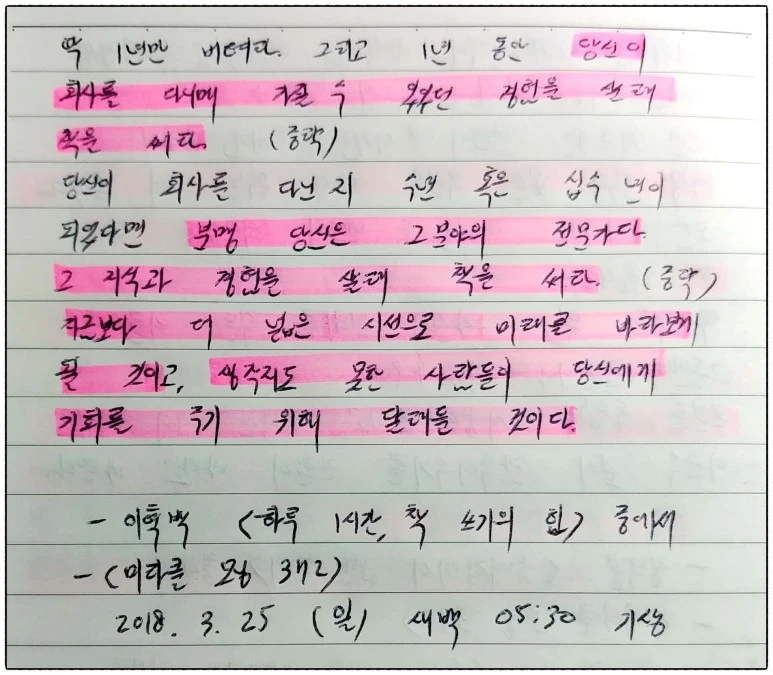 딱 1년만 버텨라. 그리고 1년 동안 당신이
회사를 다니며 겪을 수 있던 경험을 살려
책을 써라. (중략)
당신이 회사를 다닌 지 수년 혹은 십수 년이
되었다면 분명 당신은 그 분야의 전문가다.
그 지식과 경험을 살려 책을 써라. (중략)
지금보다 더 넓은 시선으로 미래를 바라보게
될 것이고, 생각지도 못한 사람들이 당신에게
기회를 주기 위해 달려들 것이다.
- 이혁백 <하루 1시간, 책 쓰기의 힘> 중에서
- <미라클 모닝 372>
2018. 3. 25 (일) 새벽 05:30 기상